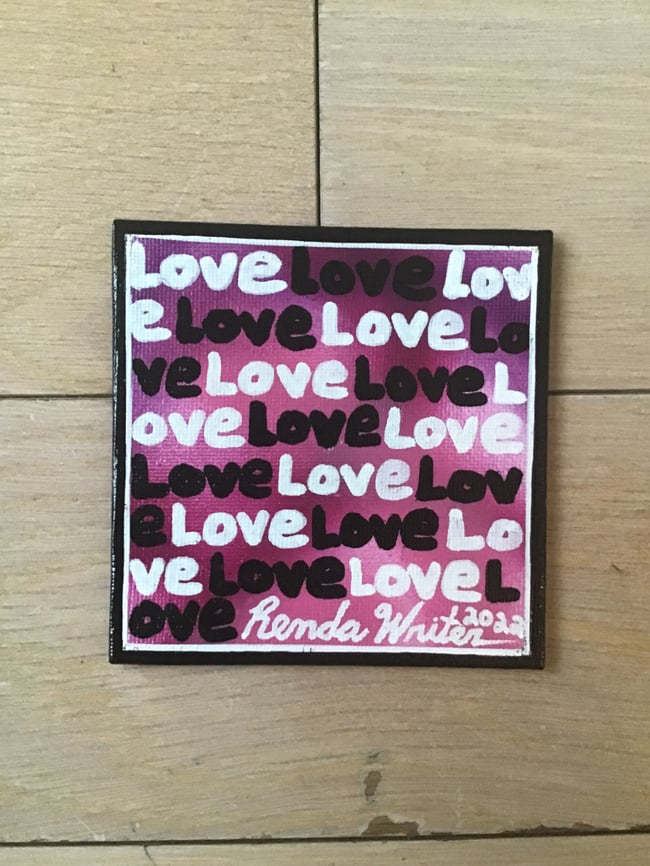 Love Love Lov
e Love Love Lo
ve Love Love L
ove Love Love
Love Love Lov
e Love Love Lo
ve Love Love L
ove Renda Writer 2022